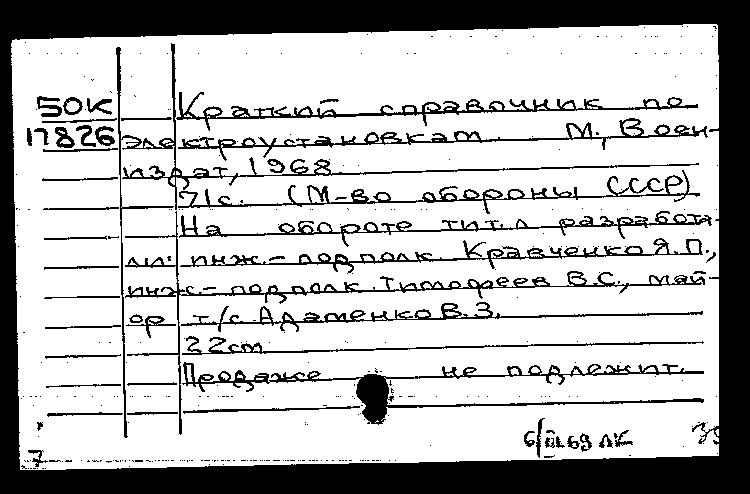 БОК Краткий справочник по
17826 электроустановкам. М., Воен-
издат, 1968.
71с. (М-во обороны СССР)
На обороте тит.л разработа-
ли: инж.-подполк. Кравченко Я.П.,
инж.-подполк. Тимофеев В.С., май-
ор т/с Адаменко В.З.
22см
Продаже не подлежит.
6/III.69 ЛК
7